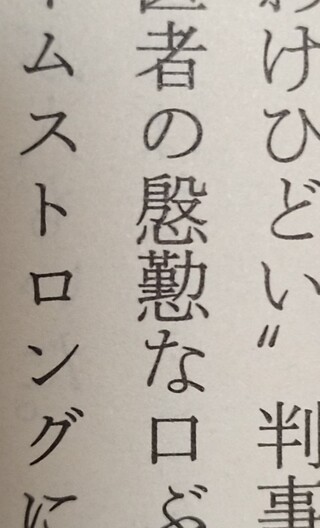 けひどい〟判事
者の慇懃な口ぶ
ムストロングに